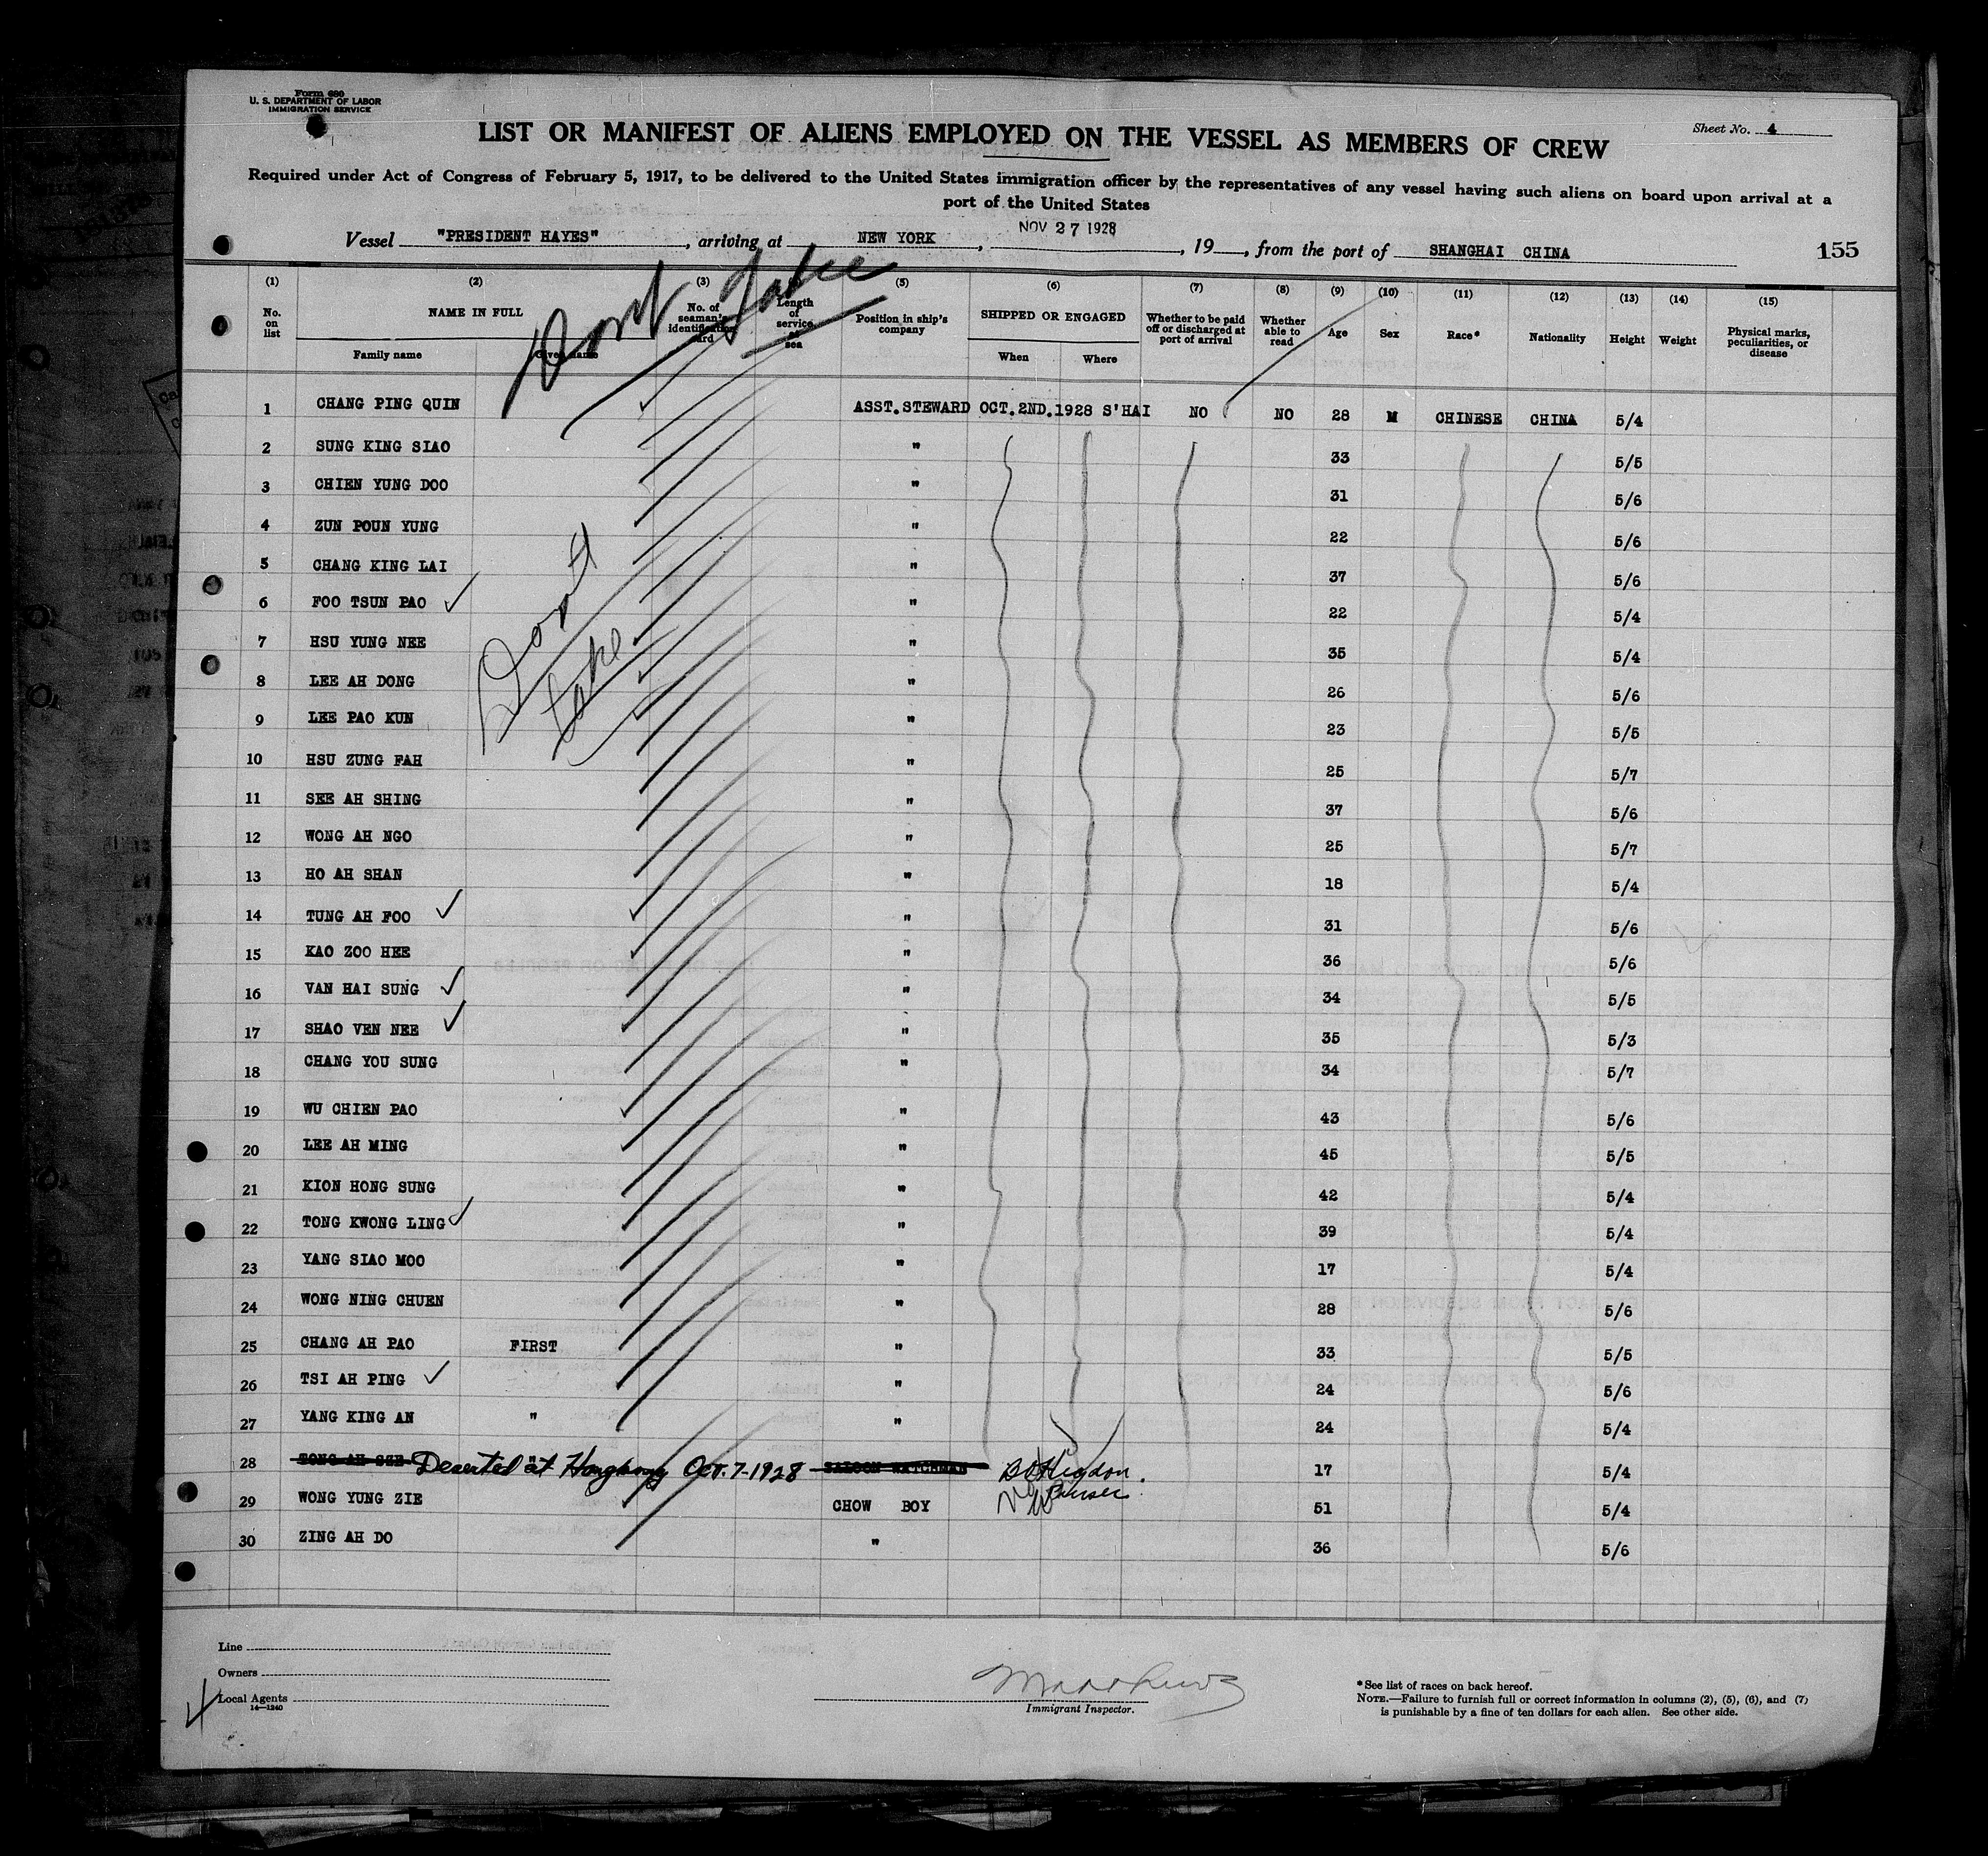 Form 680
U. S. DEPARTMENT OF LABOR
IMMIGRATION SERVICE
Sheet No. 4
LIST OR MANIFEST OF ALIENS EMPLOYED ON THE VESSEL AS MEMBERS OF CREW
Required under Act of Congress of February 5, 1917, to be delivered to the United States immigration officer by the representatives of any vessel having such aliens on board upon arrival at a
port of the United States
Vessel "PRESIDENT HAYES", arriving at NEW YORK, NOV 27 1928, 19, from the port of SHANGHAI CHINA
155
Dont Take
(1) (2) (3) (5) (6) (7) (8) (9) (10) (11) (12) (13) (14) (15)
No. on list
NAME IN FULL
Family name
Given name
No. of seaman's identification card
Length of service at sea
Position in ship's company
SHIPPED OR ENGAGED
When
Where
Whether to be paid off or discharged at port of arrival
Whether able to read
Age
Sex
Race*
Nationality
Height
Weight
Physical marks, peculiarities, or disease
1 CHANG PING QUIN ASST.STEWARD OCT.2ND.1928 S'HAI NO NO 28 M CHINESE CHINA 5/4
2 SUNG KING SIAO " 33 5/5
3 CHIEN YUNG DOO " 31 5/6
4 ZUN POUN YUNG " 22 5/6
5 CHANG KING LAI " 37 5/6
Dont take
6 FOO TSUN PAO " 22 5/4
7 HSU YUNG NEE " 35 5/4
8 LEE AH DONG " 26 5/6
9 LEE PAO KUN " 23 5/5
10 HSU ZUNG FAH " 25 5/7
11 SEE AH SHING " 37 5/6
12 WONG AH NGO " 25 5/7
13 HO AH SHAN " 18 5/4
14 TUNG AH FOO " 31 5/6
15 KAO ZOO HEE " 36 5/6
16 VAN HAI SUNG " 34 5/5
17 SHAO VEN NEE " 35 5/3
18 CHANG YOU SUNG " 34 5/7
19 WU CHIEN PAO " 43 5/6
20 LEE AH MING " 45 5/5
21 KION HONG SUNG " 42 5/4
22 TONG KWONG LING " 39 5/4
23 YANG SIAO MOO " 17 5/4
24 WONG NING CHUEN " 28 5/6
25 CHANG AH PAO FIRST " 33 5/5
26 TSI AH PING " 24 5/6
27 YANG KING AN " " 24 5/4
28 TONG AH SZE Deserted at Hongkong Oct. 7-1928 SALOON WATCHMAN 17 5/4
Purser
29 WONG YUNG ZIE CHOW BOY 51 5/4
30 ZING AH DO " 36 5/6
Line
Owners
Local Agents
14—1240
Immigrant Inspector.
*See list of races on back hereof.
NOTE.—Failure to furnish full or correct information in columns (2), (5), (6), and (7)
is punishable by a fine of ten dollars for each alien. See other side.